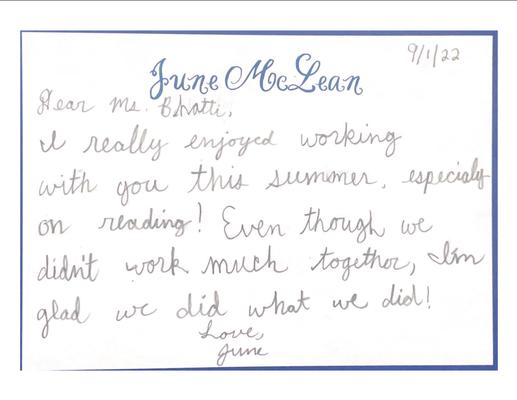 June McLean
9/1/22
Dear Ms. Bhatti,
I really enjoyed working
with you this summer, especialy
on reading! Even though we
didn't work much together, I'm
glad we did what we did!
Love,
June